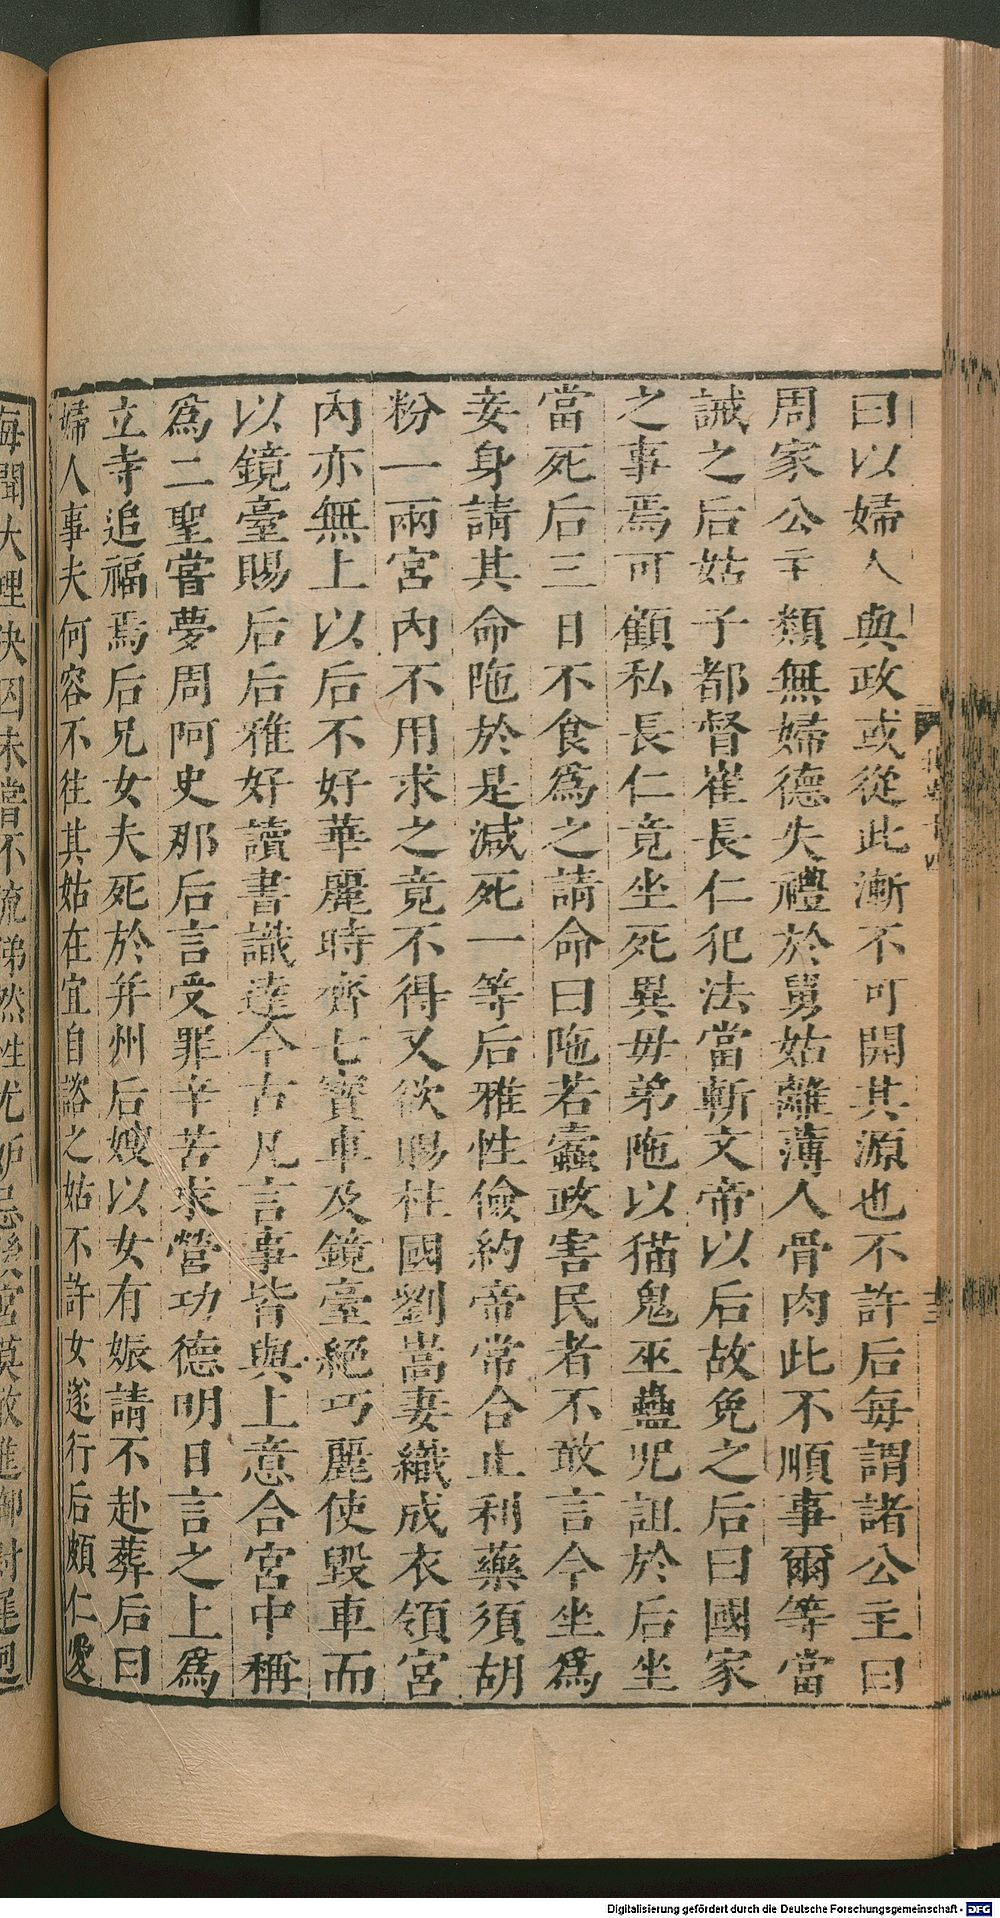 曰以婦人與政或從此漸不可開其源也不許后每謂諸公主曰
周家公主類無婦德失禮於舅姑離薄人骨肉此不順事爾等當
誡之后姑子都督崔長仁犯法當斬文帝以后故免之后曰國家
之事焉可顧私長仁竟坐死異母弟陁以猫鬼巫蠱咒詛於后坐
當死后三日不食為之請命曰陁若蠹政害民者不敢言今坐為
妾身請其命陁於是減死一等后雅性儉約帝常合止利藥須胡
粉一兩宮內不用求之竟不得又欲賜柱國劉嵩妻織成衣領宮
內亦無上以后不好華麗時齊七寶車及鏡臺絕巧麗使毀車而
以鏡臺賜后后雅好讀書識達今古凡言事皆與上意合宮中稱
為二聖嘗夢周阿史那后言受罪辛苦求營功德明日言之上為
立寺追福焉后兄女夫死於并州后嫂以女有娠請不赴葬后曰
婦人事夫何容不往其姑在宜自諮之姑不許女遂行后頗仁愛
每聞大理決囚未嘗不流涕然性尤妒忌後宮莫敢進御尉遲迥
Digitalisierung gefördert durch die Deutsche Forschungsgemeinschaft - DFG